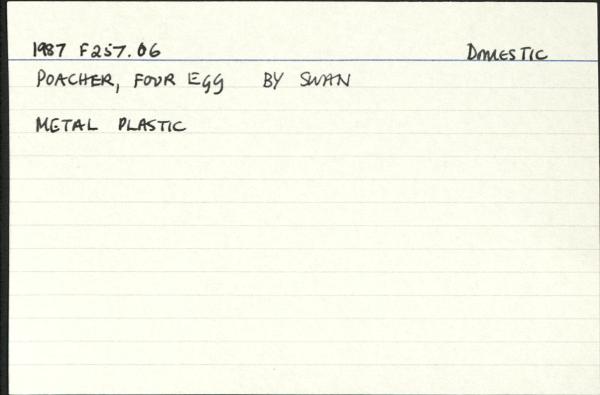 1987 F257.06 DOMESTIC
POACHER, FOUR EGG BY SWAN
METAL PLASTIC